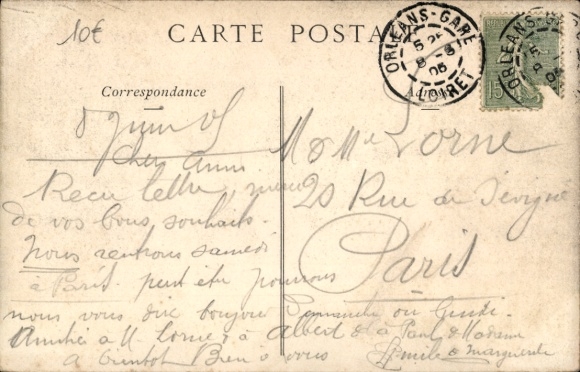 10€
CARTE POSTA
ORLEANS-GARE
5
8-6
05
LOIRET
ORLEANS-GARE
15
Correspondance
Adresse
8 Juin 05
M & Mme Lorne
20 Rue de Sévigné
Paris
Chers Amis
Reçu lettre, merci
de vos bons souhaits.
Nous rentrons samedi
à Paris. peut être pourrons
nous vous dire bonjour Dimanche ou Lundi.
Amitiés à M. Lorne, à Albert & à Paul & Madame
à bientôt Bien à vous
Emile & Marguerite